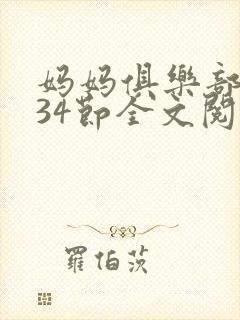 妈妈俱樂部
34節全文閱
羅伯茨